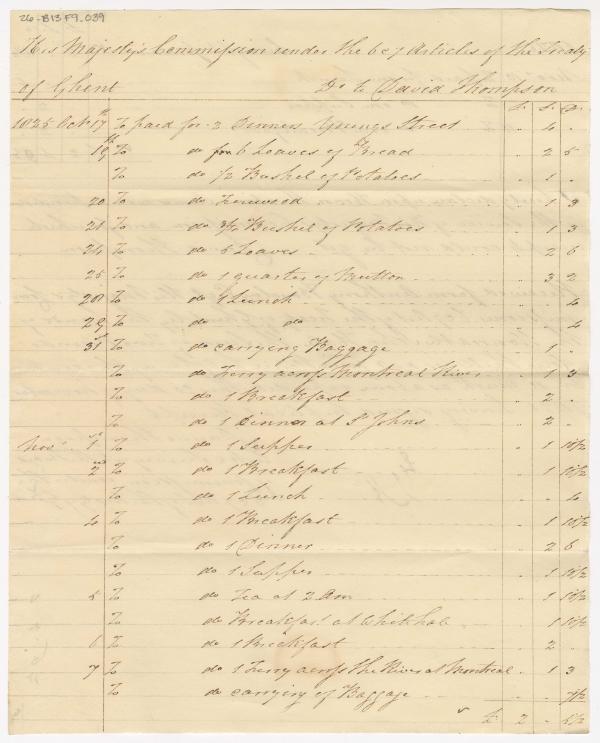 26-B13 F9.039
His Majesty's Commission under the 6 & 7 Articles of the Treaty
of Ghent Dr to David Thompson
£. S. D.
1825 Octr 17th To paid for 2 Dinners Youngs Street " 4 "
19th To do for 6 Loaves of Bread " 2 6
To do 1/2 Bushel of Potatoes " 1 "
20 To do Firewood " 1 3
21 To do 1/2 Bushel of Potatoes " 1 3
24 To do 6 Loaves " 2 6
26 To do 1 quarter of Mutton " 3 2
28 To do 1 Lunch " " 4
29 To do do " " 4
31st To do carrying Baggage " 1 "
To do Ferry across Montreal River " 1 3
To do 1 Breakfast " 2 "
To do 1 Dinner at St Johns " 2 "
Novr 1st To do 1 Supper " 1 10 1/2
2nd To do 1 Breakfast " 1 10 1/2
To do 1 Lunch " " 4
4 To do 1 Breakfast " 1 10 1/2
To do 1 Dinner " 2 6
To do 1 Supper " 1 10 1/2
5 To do Tea at 2 am " 1 10 1/2
To do Breakfast at Whitehall " 1 10 1/2
6 To do 1 Breakfast " 2 "
7 To do 1 Ferry across the River at Montreal " 1 3
To do carrying of Baggage " " 7 1/2
£ 2 " 5 1/2